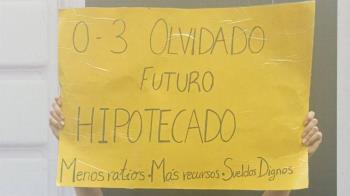 0-3 OLVIDADO
FUTURO
HIPOTECADO
Menos ratios. Más recursos. Sueldos Dignos